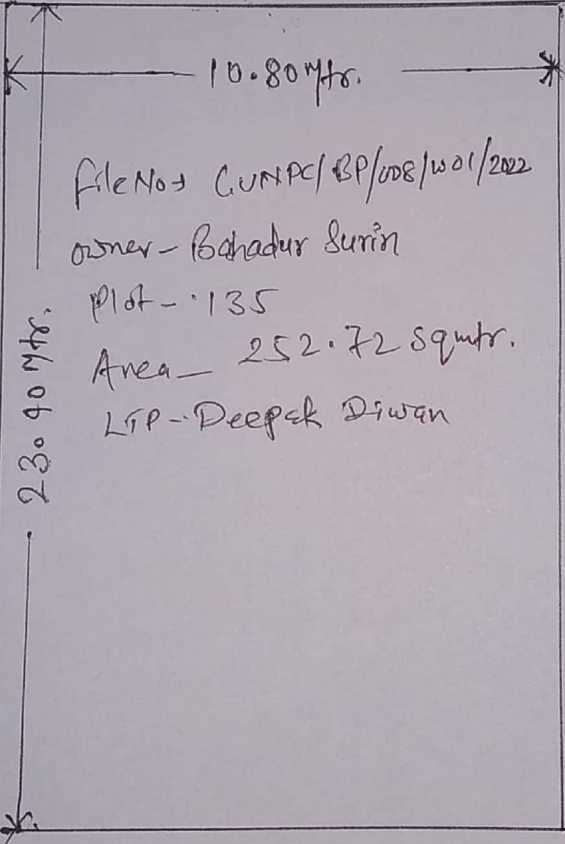 10.80 Mtr.
File No→ GUNPC/BP/008/W01/2022
owner - Bahadur Surin
Plot - 135
Area - 252.72 Sqmtr.
LTP - Deepak Diwan
23.40 Mtr.